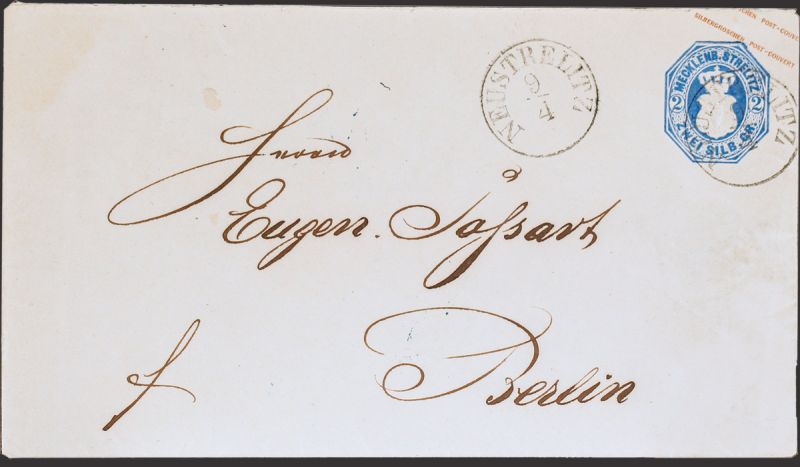 SCHEN POST-COUVERT
SILBERGROSCHEN POST-COUVERT
MECKLENB. STRELITZ
2 2
ZWEI SILB. GR.
NEUSTRELITZ
9/4
Herrn
Eugen. Jassart
f
Berlin